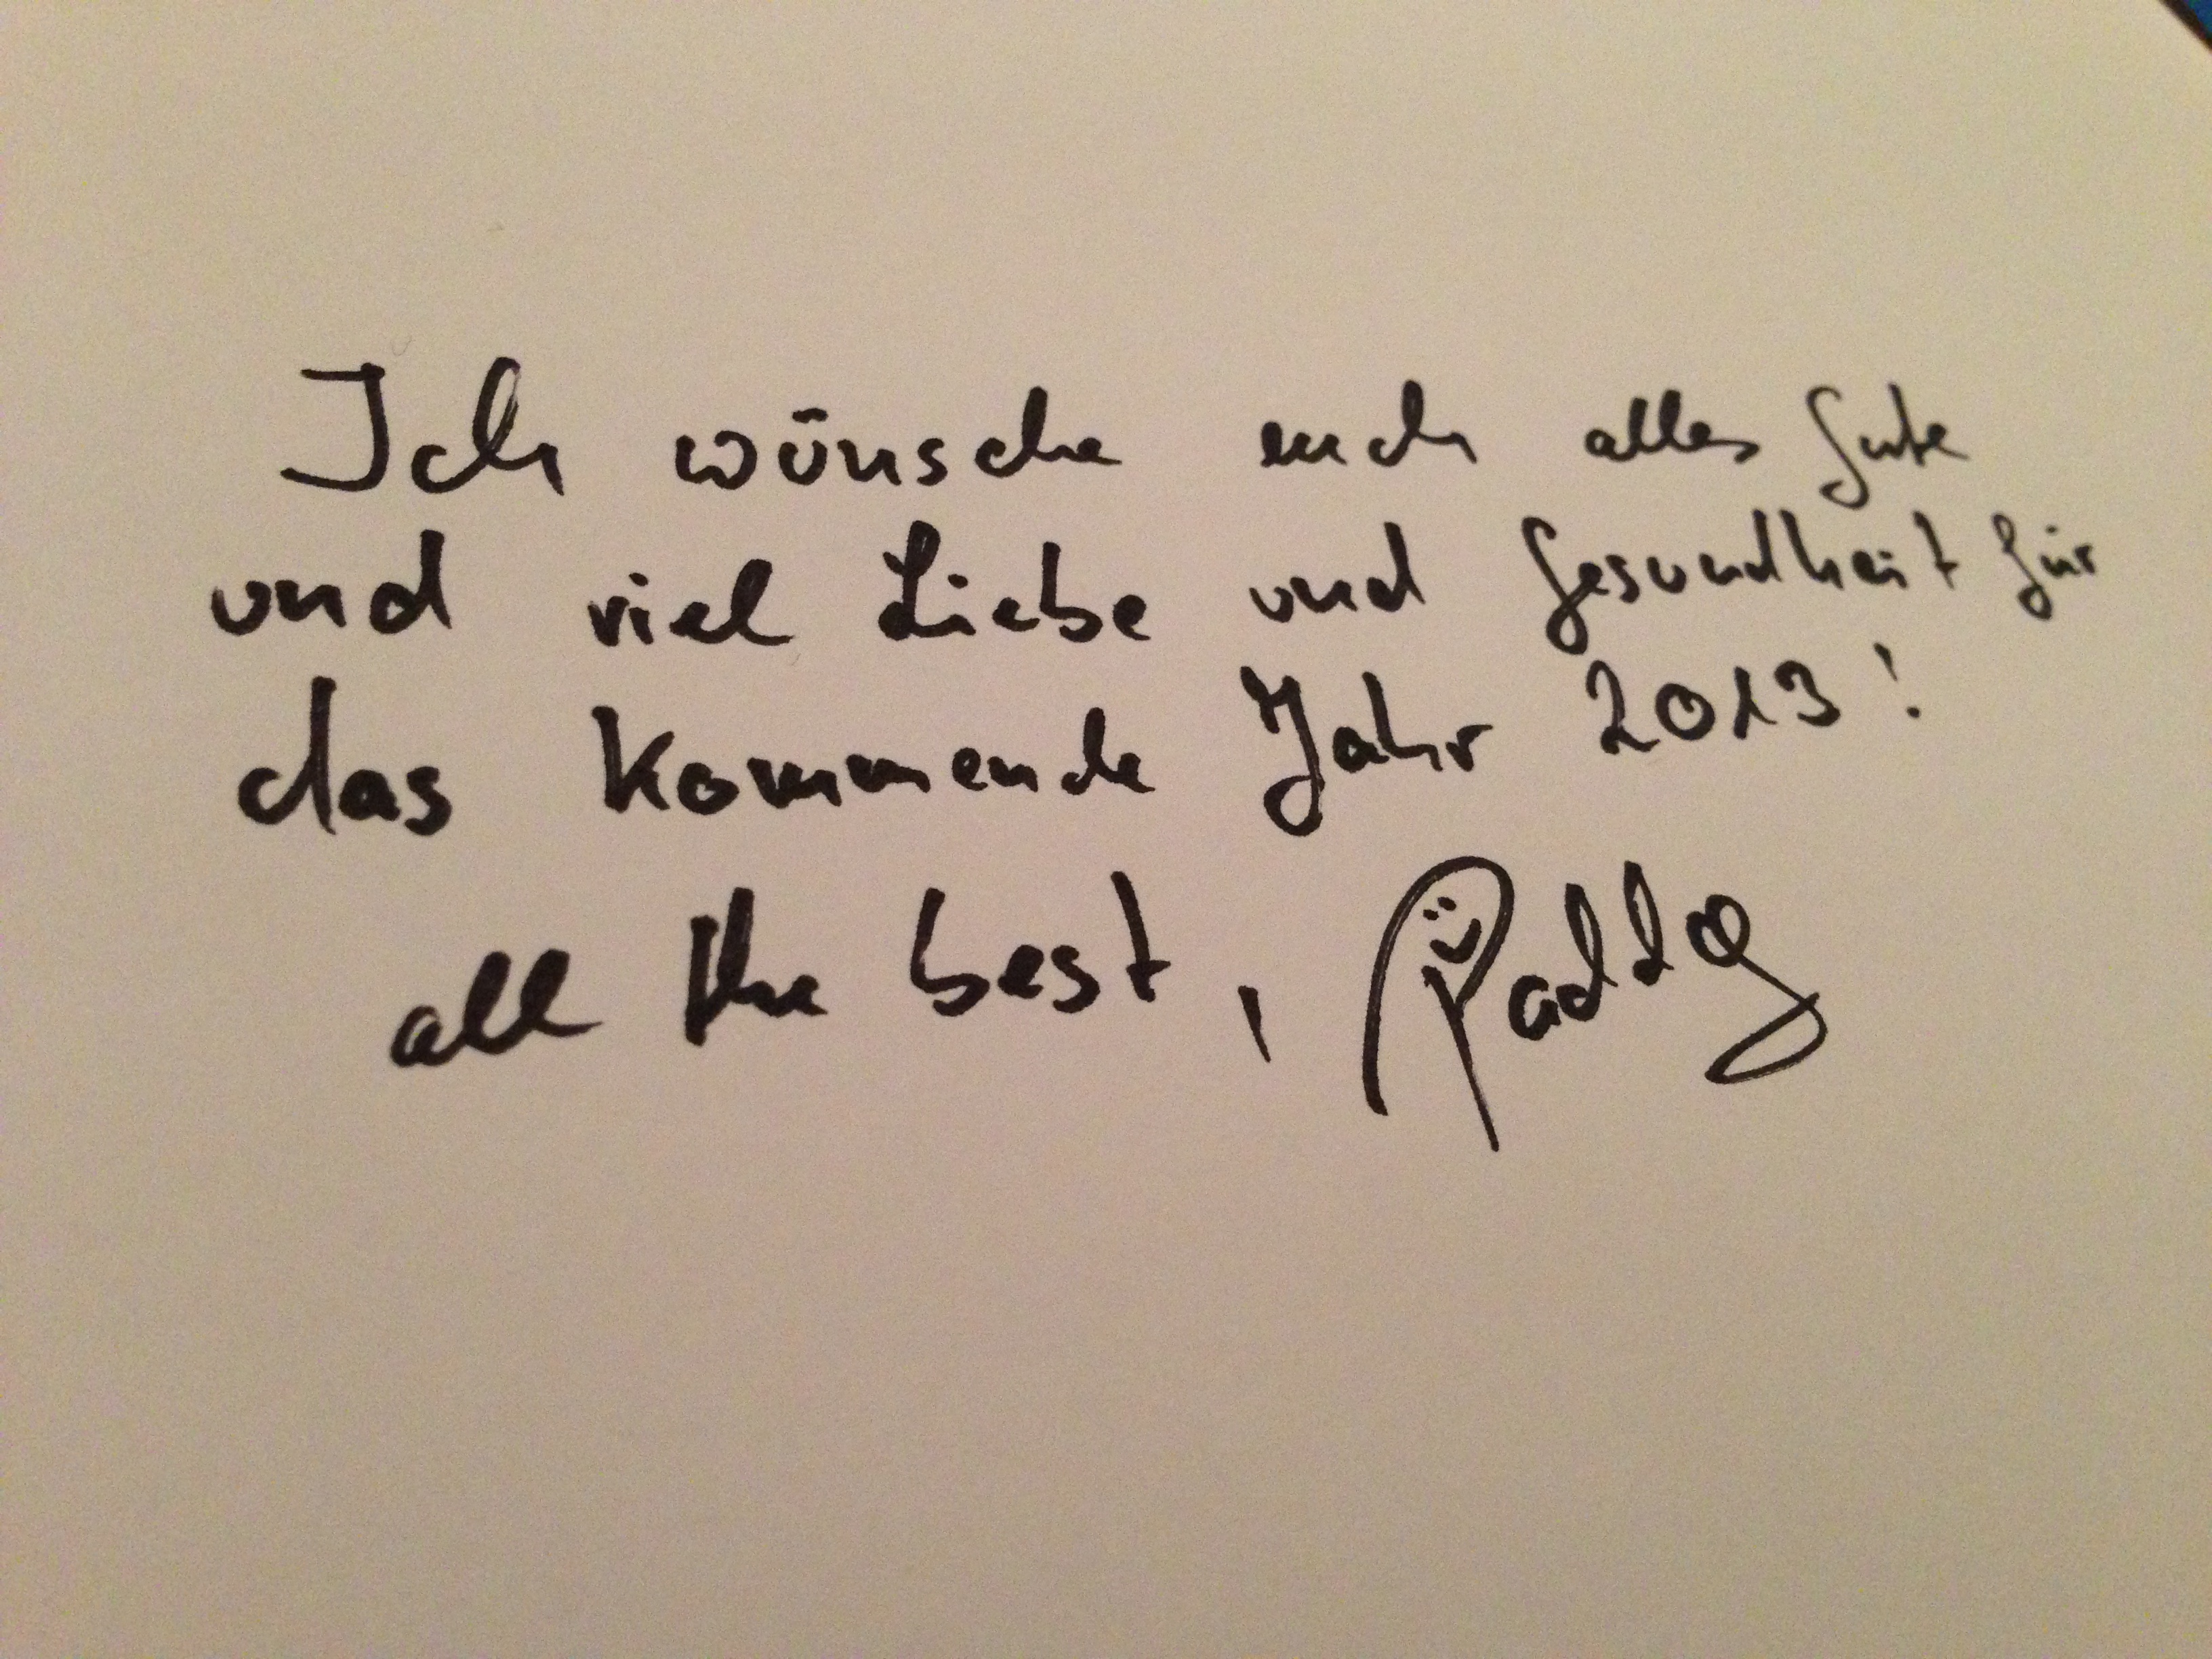 Ich wünsche euch alles Gute
und viel Liebe und Gesundheit für
das kommende Jahr 2013!
all the best, Paddy